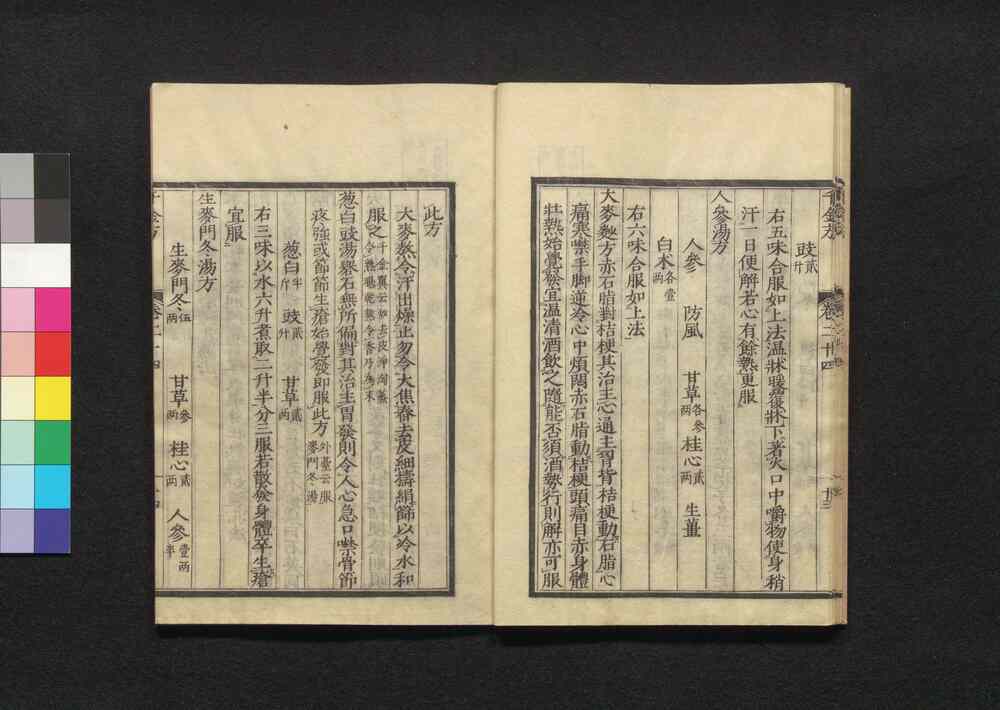 千金方 卷二十四 十三
豉貳升
右五味合服如上法温牀暖覆牀下著火口中嚼物使身稍
汗一日便解若心有餘熱更服
人參湯方
人參 防風 甘草各參兩 桂心貳兩 生薑
白朮各壹兩
右六味合服如上法
大麥麨方赤石脂對桔梗其治主心通主胷背桔梗動石脂心
痛寒噤手脚逆冷心中煩悶赤石脂動桔梗頭痛目赤身體
壯熱始覺發宜温清酒飲之隨能否須酒勢行則解亦可服
此方
大麥熬令汗出燥止勿令大焦舂去皮細擣絹篩以冷水和
服之千金翼云
葱白豉湯礜石無所偏對其治主胃發則令人心急口噤骨節
疼強或節節生瘡始覺發即服此方外臺云服麥門冬湯
葱白半斤 豉貳升 甘草貳兩
右三味以水六升煮取二升半分三服若散發身體卒生瘡
宜服
生麥門冬湯方
生麥門冬伍兩 甘草參兩 桂心貳兩 人參壹兩半
千金方 卷二十四 十四